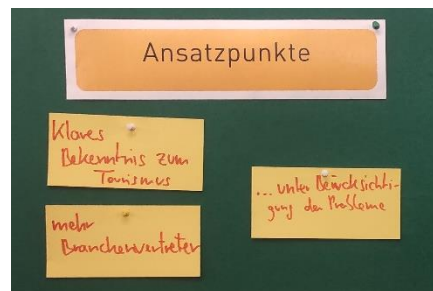 Ansatzpunkte
Klares
Bekenntnis zum
Tourismus
mehr
Branchenvertreter
... unter Berücksichti-
gung der Probleme